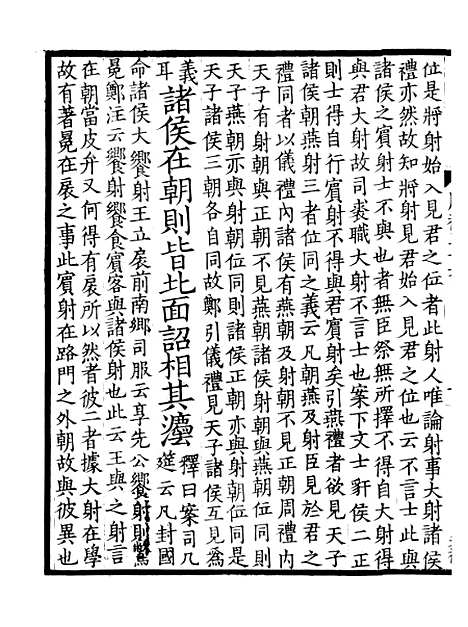 位是將射始入見君之位者此射人唯論射事大射諸侯
禮亦然故知將射見君始入見君之位也云不言士此與
諸侯之賓射士不與也者無臣祭無所擇不得自大射得
與君大射故司裘職大射不言士也案下文士豻侯二正
則士得自行賓射不得與君賓射矣引燕禮者欲見天子
諸侯朝燕射三者位同之義云凡朝燕及射臣見於君之
禮同者以儀禮內諸侯有燕朝及射朝不見正朝周禮內
天子有射朝與正朝不見燕朝諸侯射朝與燕朝位同則
天子燕朝亦與射朝位同則諸侯正朝亦與射朝位同是
天子諸侯三朝各自同故鄭引儀禮見天子諸侯互見為
義
諸侯在朝則皆北面詔相其灋
釋曰案司几
耳
筵云凡封國
命諸侯大饗射王立扆前南鄉司服云享先公饗射則鷩
冕鄭注云饗射饗食賓客與諸侯射也此云王與之射言
在朝當皮弁又何得有扆所以然者彼二者據大射在學
故有著冕在扆之事此賓射在路門之外朝故與彼異也